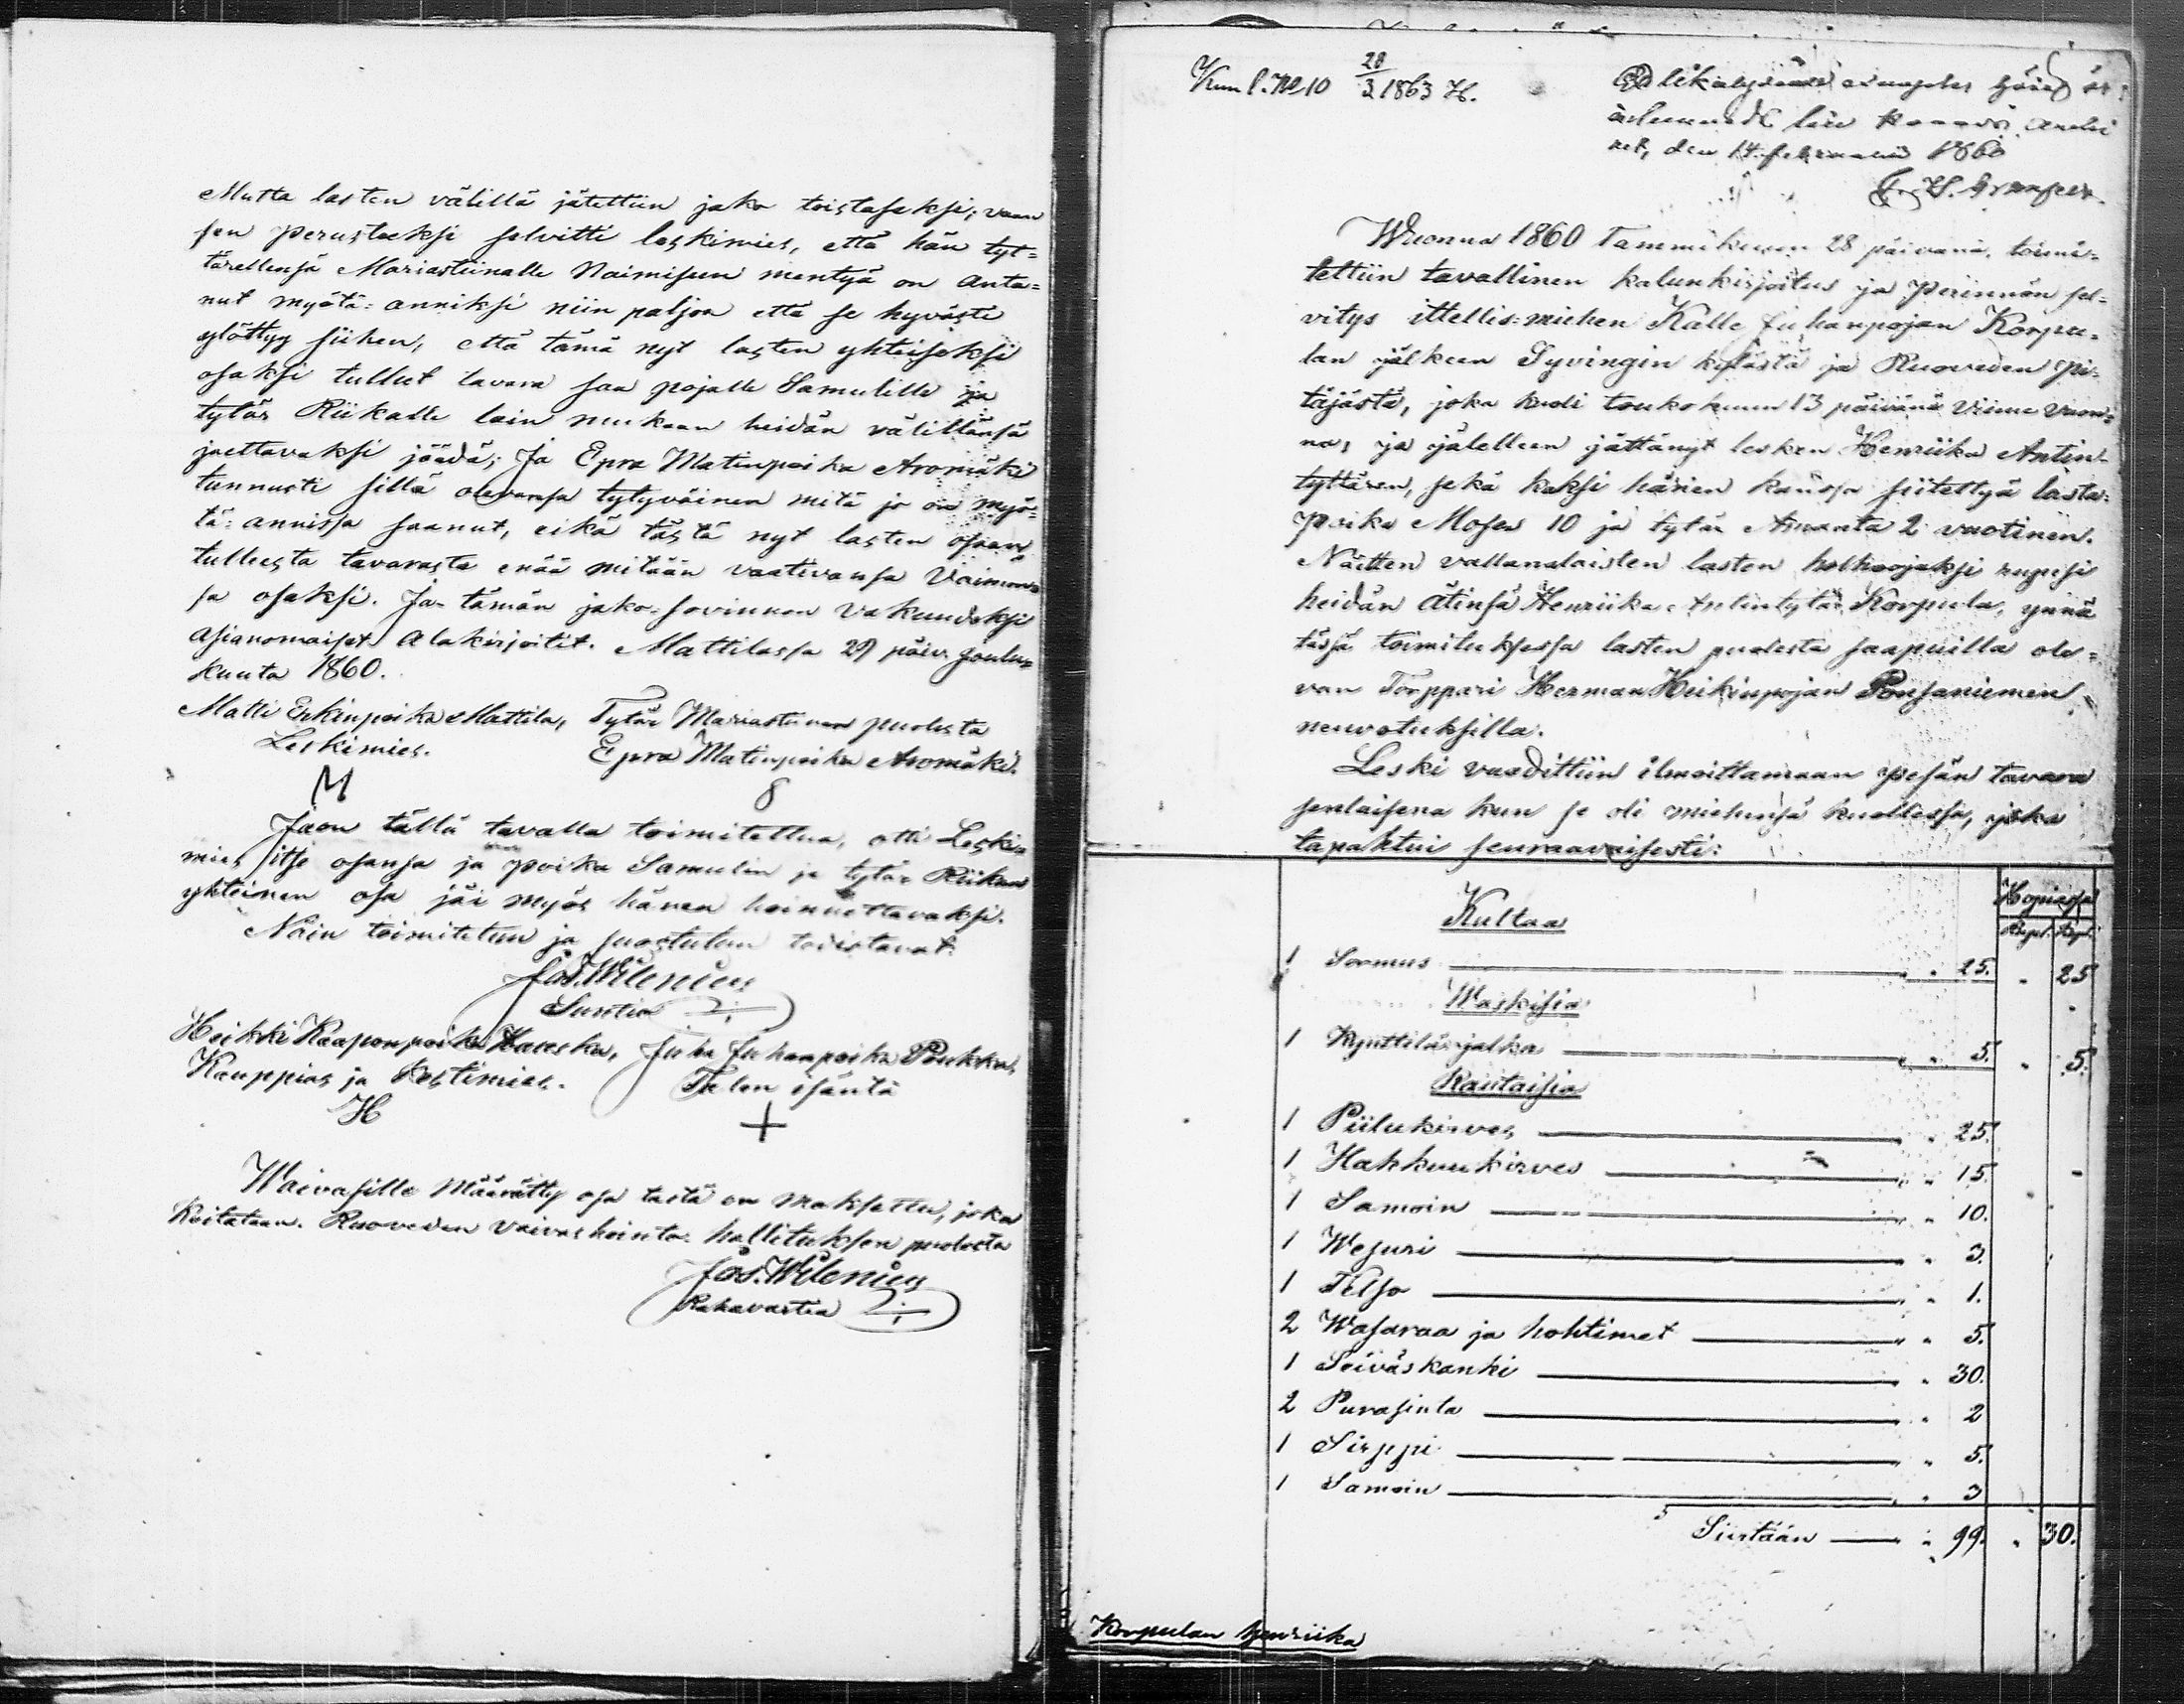 Mutta lasten välillä jätettiin jako toistaseksi, vaan
sen perusteeksi selvitti leskimies, että hän tyt=
tärellensä Mariastiinalle Naimiseen mentyä on anta=
nut myötä=anniksi niin paljon että se hyvästi
ylöttyy siihen, että tämä nyt lasten yhteiseksi
osaksi tullut tavara saa pojalle Samulille ja
tytär Riikalle lain mukaan heidän välillänsä
jaettavaksi jäädä; Ja Epra Matinpoika Aromäki
tunnusti sillä olevansa tytyväinen mitä jo on myö=
tä=annissa saanut, eikä tästä nyt lasten osaan
tulleesta tavarasta enää mitään vaativansa Vaimon=
sa osaksi. Ja tämän jako=sovinnon vakuudeksi
asianomaiset alakirjoitit. Mattilassa 29 päiv. Joulu=
kuuta 1860.
Matti Erkinpoika Mattila, Tytär Mariastiinan puolesta
Leskimies. Epra Matinpoika Aromäki.
M 8
Jaon tällä tavalla toimitettua, otti Leski=
mies itse osansa ja poika Samulin ja tytär Riikan
yhteinen osa jäi myös hänen hoinnettavaksi.
Näin toimitetun ja suostutun todistavat.
Jos. Wilenius
Suntio
Heikki Kaaponpoika Hauska, Juha Juhanpoika Poukka,
Kauppias ja Kestimies. Talon isäntä
H +
Waivasille Määrätty osa tästä on maksettu, joka
kvitataan. Ruoveden vaivashointo=hallituksen puolesta
Jos. Wilenius
Rahavartia
Kun l. No 10 28/3 1863 H.
den 14 februarii 1860
Wuonna 1860 Tammikuun 28 päivänä, toimi=
tettiin tavallinen kalunkirjoitus ja perinnön sel=
vitys ittellis=miehen Kalle Juhanpojan Korpu=
lan jälkeen Syvingin kylästä ja Ruoveden pi=
täjästä, joka kuoli toukokuun 13 päivänä viime vuon=
na, ja jälelleen jättänyt lesken Henriika Antin=
tyttären, sekä kaksi hänen kanssa siitettyä lasta:
poika Moses 10 ja tytär Amanta 2 vuotinen.
Näitten vallanalaisten lasten holhoojaksi rupesi
heidän ätinsä Henriika Antintytär Korpula, ynnä
tässä toimituksessa lasten puolesta saapuilla ole=
van Torppari Herman Heikinpojan Pohjaniemen
neuvotuksilla.
Leski vaadittiin ilmoittamaan pesän tavara
senlaisena kun se oli miehensä kuollessa, joka
tapahtui seuraavaisesti:
Hopiassa
Kultaa Rupl. Kop.
1 Sormus " " 25. " 25
Waskisia
1 Kynttilänjalka " " 5. " 5.
Rautaisia
1 Piilukirves " " 25.
1 Hakkuukirves " " 15.
1 Samoin " " 10.
1 Wesuri " " 3.
1 Telso " " 1.
2 Wasaraa ja hohtimet " " 5.
1 Seiväskanki " " 30.
2 Purasinta " " 2
1 Sirppi " " 5.
1 Samoin " " 3
Siirtään " 99. " 30.
Korpulan Henriika